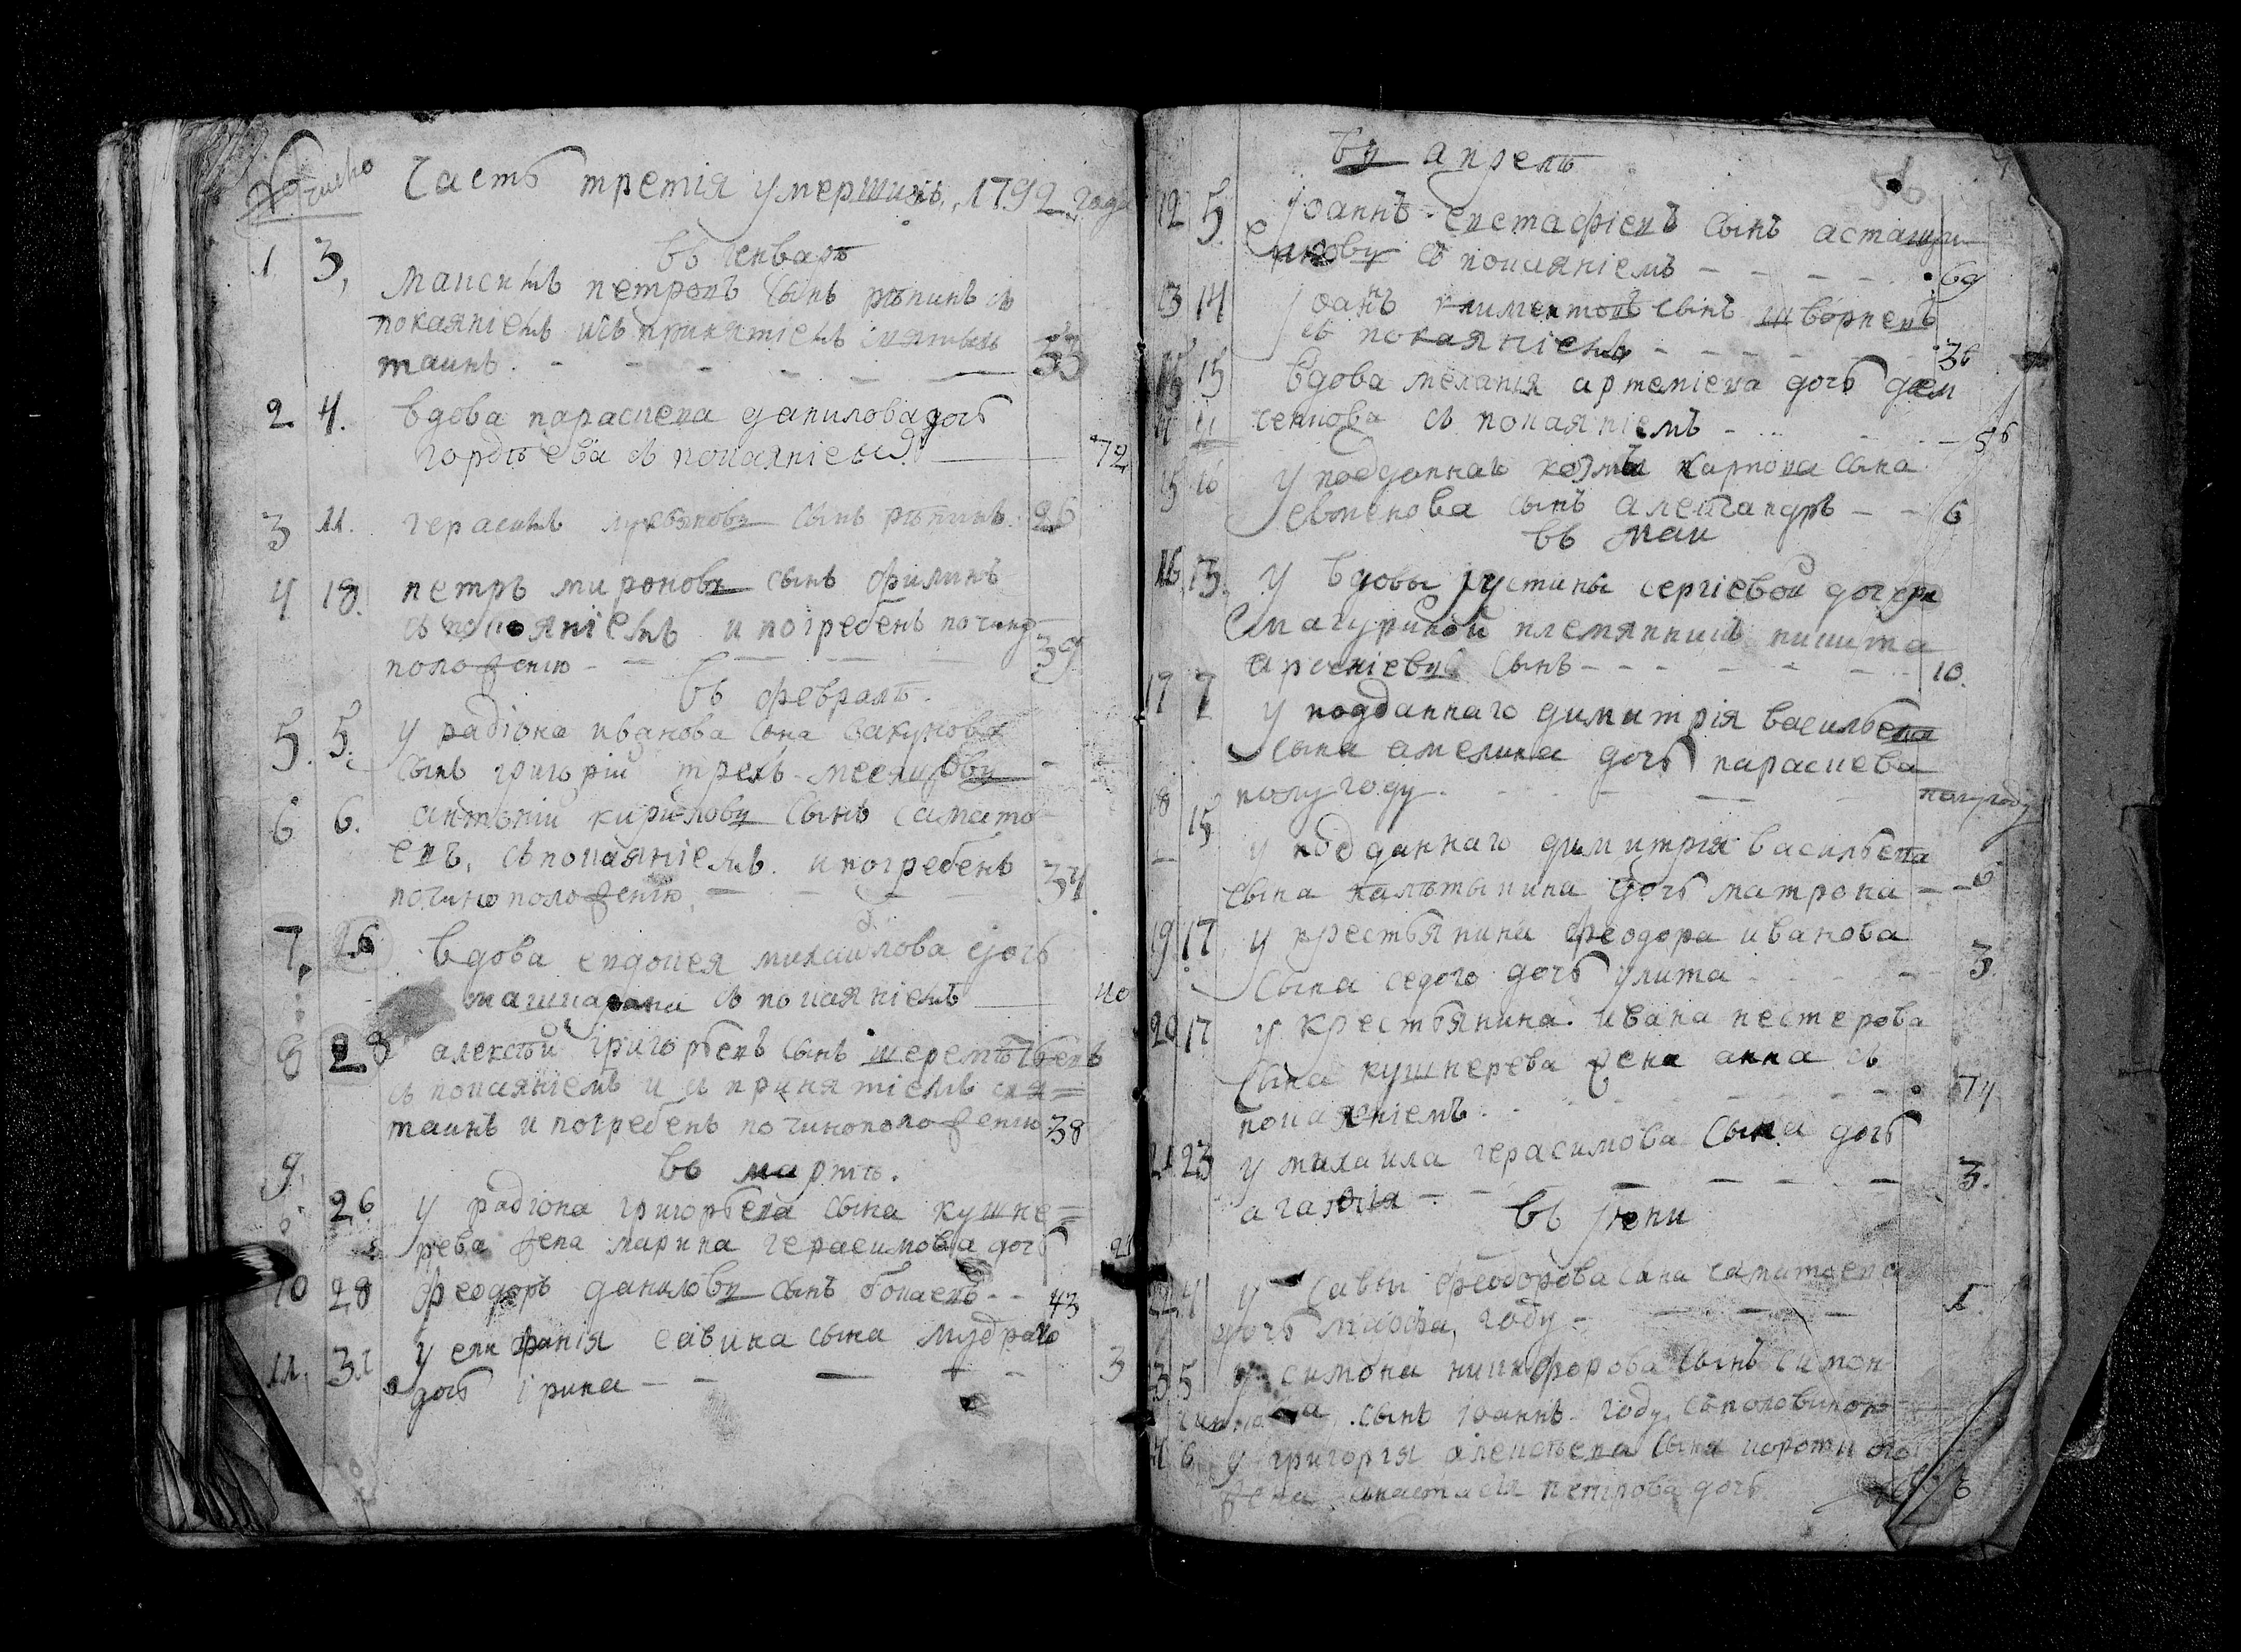 число
Часть третія умершихъ, 1792 года
въ генварѣ
1 3, Максимъ петровъ сынъ рѣпинъ съ
покаяніемъ исъ принятіемъ святыхъ
таинъ. 53
2 4. вдова параскева данилова дочь
гордѣева съ покаяніемъ 72
3 11. герасимъ лукьяновъ сынъ рѣпинъ 26
4 18. петръ мироновъ сынъ филинъ
съ покаяніемъ и погребенъ почино
положенію 39
въ февралѣ
5. 5. у радіона иванова сна
сынъ григорій трехъ месяцовъ
6 6. антоній кириловъ сынъ самато
евъ, съ покаяніемъ и погребенъ
починоположенію, 34
7, 26 вдова евдокея михайлова дочь
съ покаяніемъ 40
8 28 алексѣй григорьевъ сынъ шереметьевъ
съ покаяніемъ и съ принятіемъ свя=
таинъ и погребенъ починоположенію 38
въ мартѣ.
9, 26 у радіона григорьева сына кушне=
рева жена марина герасимова дочь 21
10 28 феодоръ даниловъ сынъ 43
11, 31 у епифанія савина сына мудраго
дочь ірина 3
въ апрелѣ
56
12 5. Іоаннъ евстафіевъ сынъ
съ покаяніемъ 69
13 14 Іоанъ климентовъ сынъ шворневъ
съ покаяніемъ 36
15 вдова меланія артеміева дочь дем
ченкова съ покаяніемъ 56
15 16 у подданнаго козмы карпова сына
сынъ алеѯандръ 6
въ маи
16 13. у вдовы іустины сергіевой дочери
племянникъ никита
арсеніевъ сынъ 10.
17 7 у подданнаго димитрія васильева
сына амелина дочь параскева
полугоду полугоду
18 15 у подданнаго димитрія васильева
сына калытынина дочь матрона 6
19 17 у крестьянина феодора иванова
сына седого дочь улита 3.
20 17 у крестьянина ивана нестерова
сына кушнерева жена анна съ
покаяніемъ 74
21 23 у михаила герасимова сына дочь
агафія 3.
въ Іюни
22 4 у савы феодорова сна саматоева
дочь марфа, году 1.
23 5 у симона никифорова сынъ симон
сынъ іоаннъ году съполовиною
24 6 у григорія алексѣева сына
жена анастасія петрова дочь